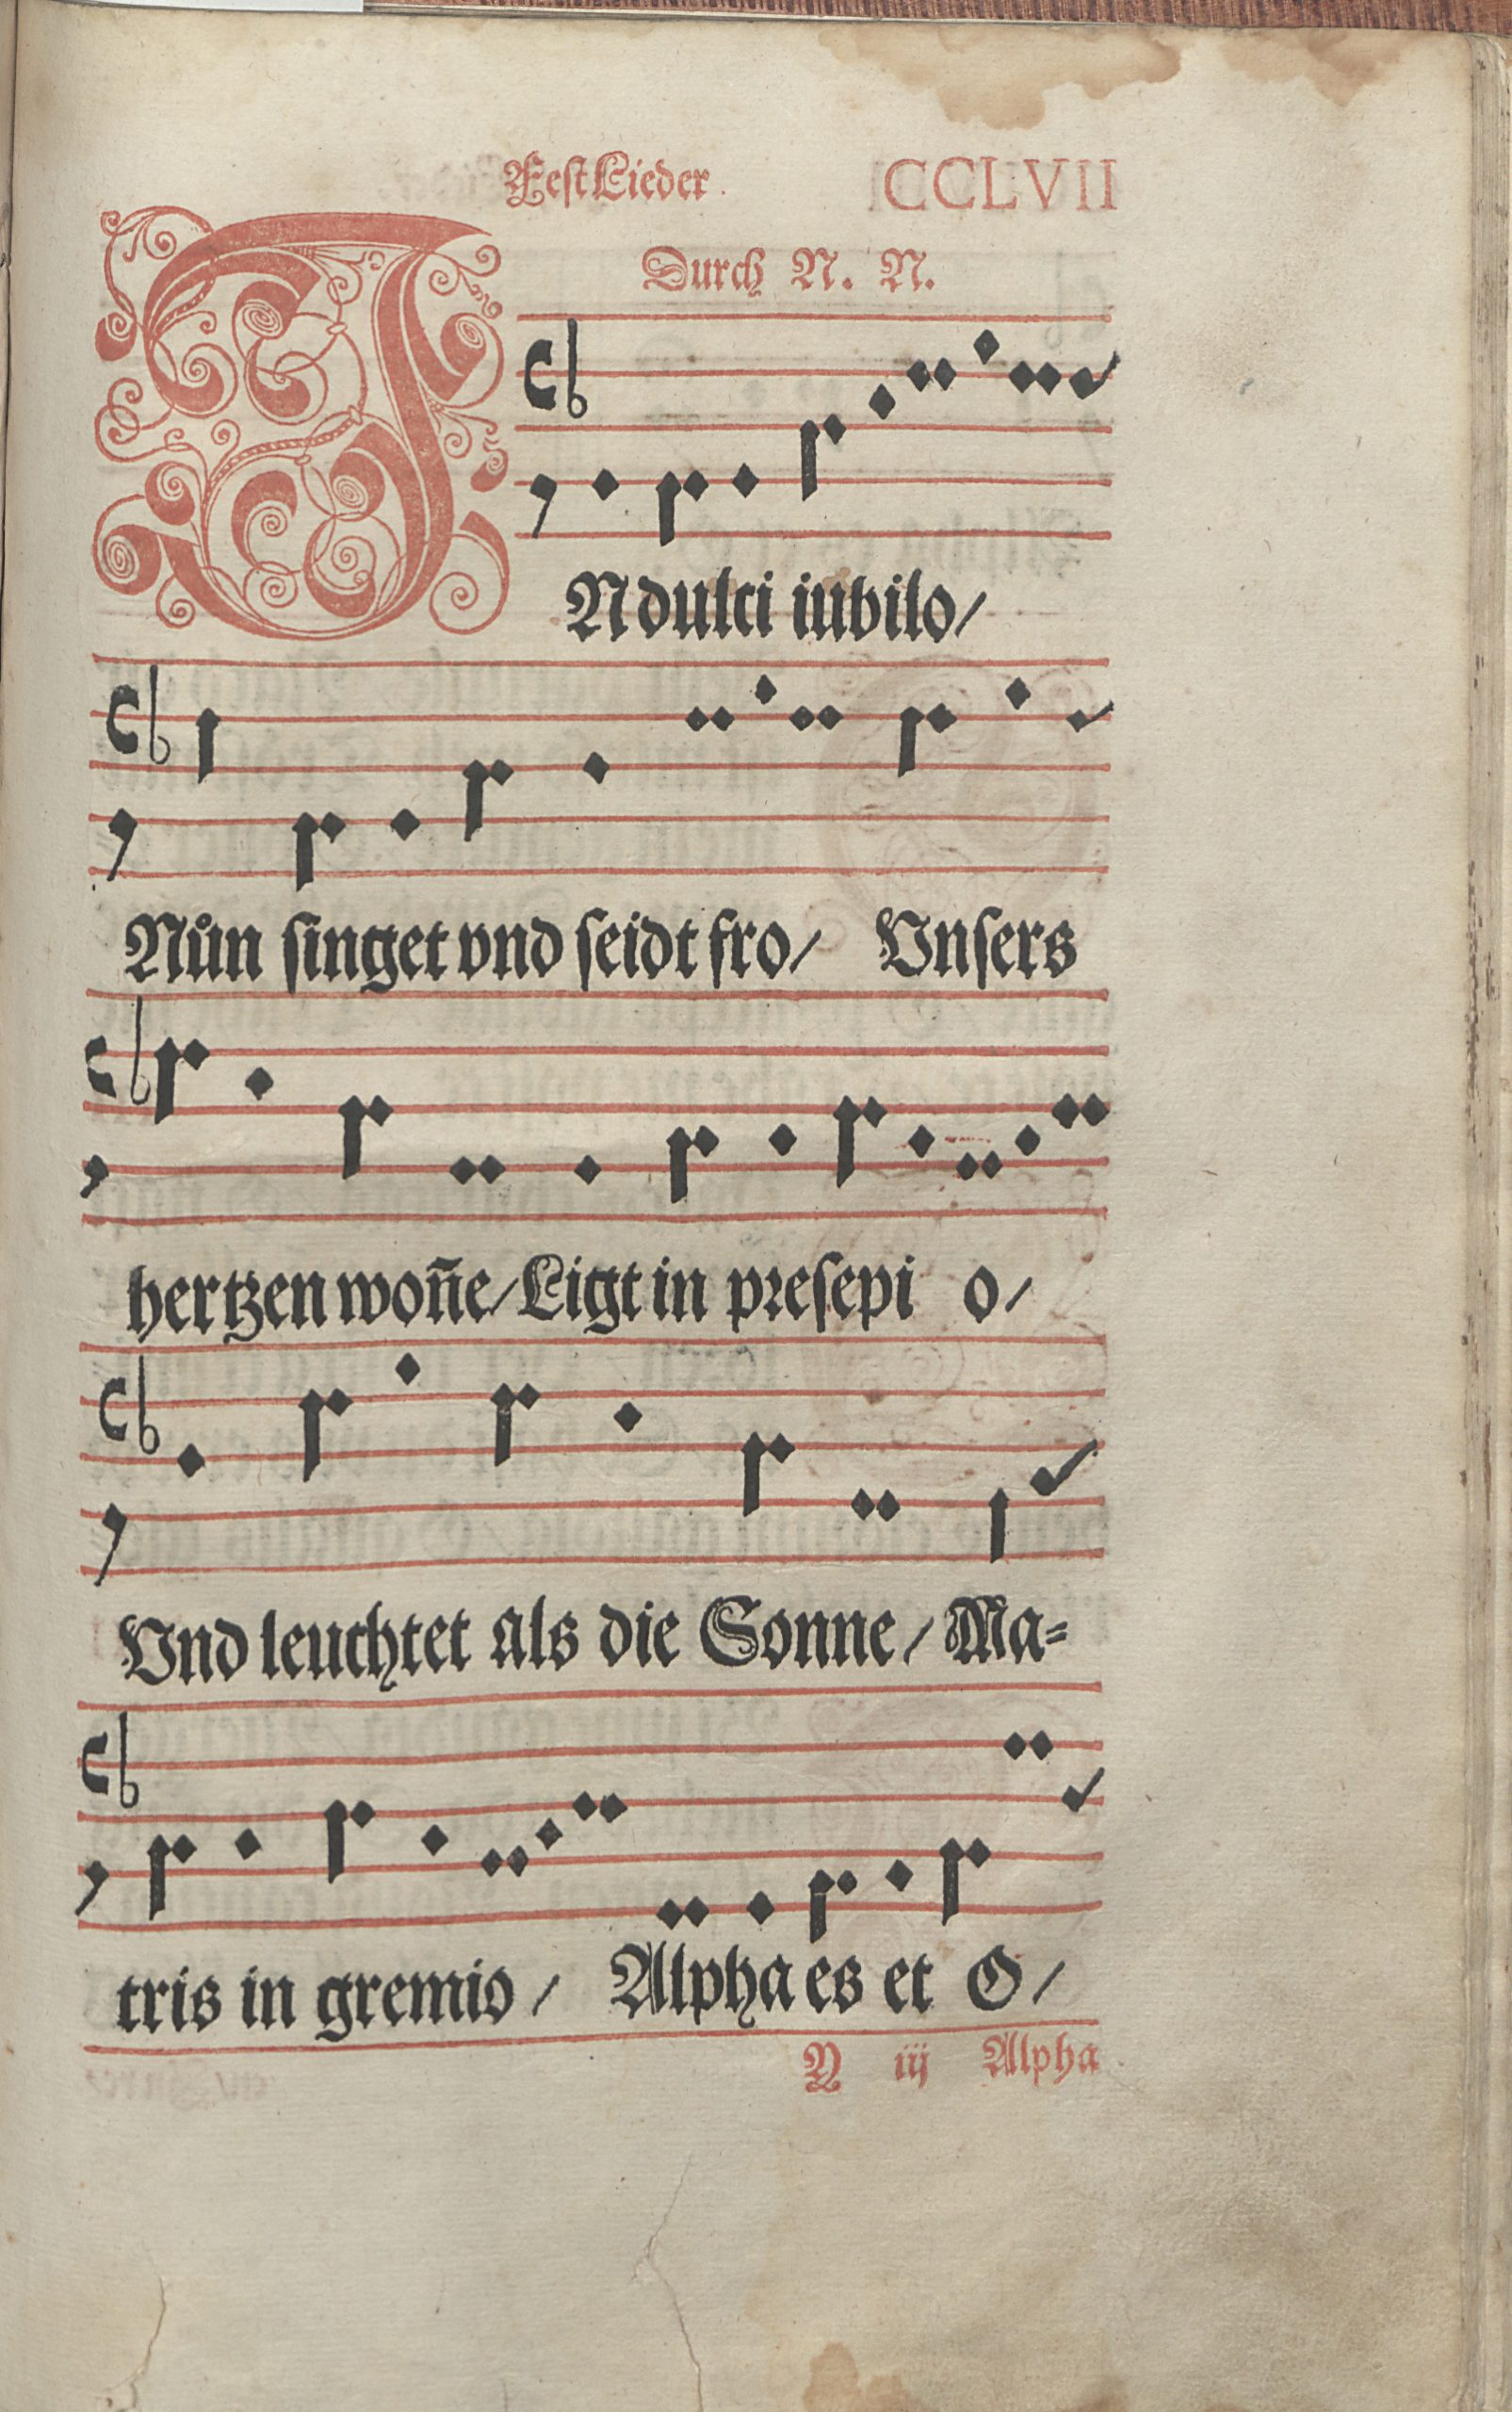 Feſt Lieder.
CCLVII
Durch N. N.
IN dulci iubilo/
Nůn ſinget vnd ſeidt fro/ Vnſers
hertzen woñe/ Ligt in preſepi o/
Vnd leuchtet als die Sonne/ Ma⸗
tris in gremio/ Alpha es et O/
N iij Alpha